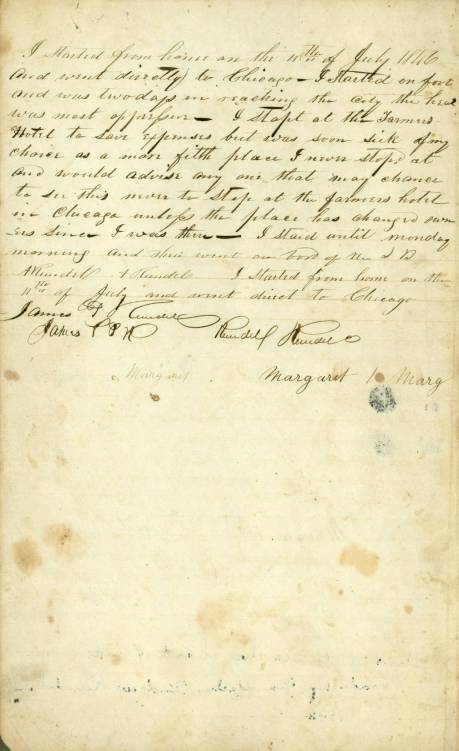 I started from home on the 11th of July 1846
and went directly to Chicago — I started on foot
and was two days in reaching the city the heat
was most oppresive — I stopt at the Farmers
Hotel to save expenses but was soon sick of my
choice as a more filth place I never stoped at
and would advise any one that may chance
to see this never to stop at the farmers hotel
in Chicago unless the place has changed own
ers since I was there — I staid until monday
morning and then went on bord of the
Rundel Rundel I started from home on the
11th of July and went direct to Chicago
James Rundel
James Rundel Rundel
Margaret Margaret Marg